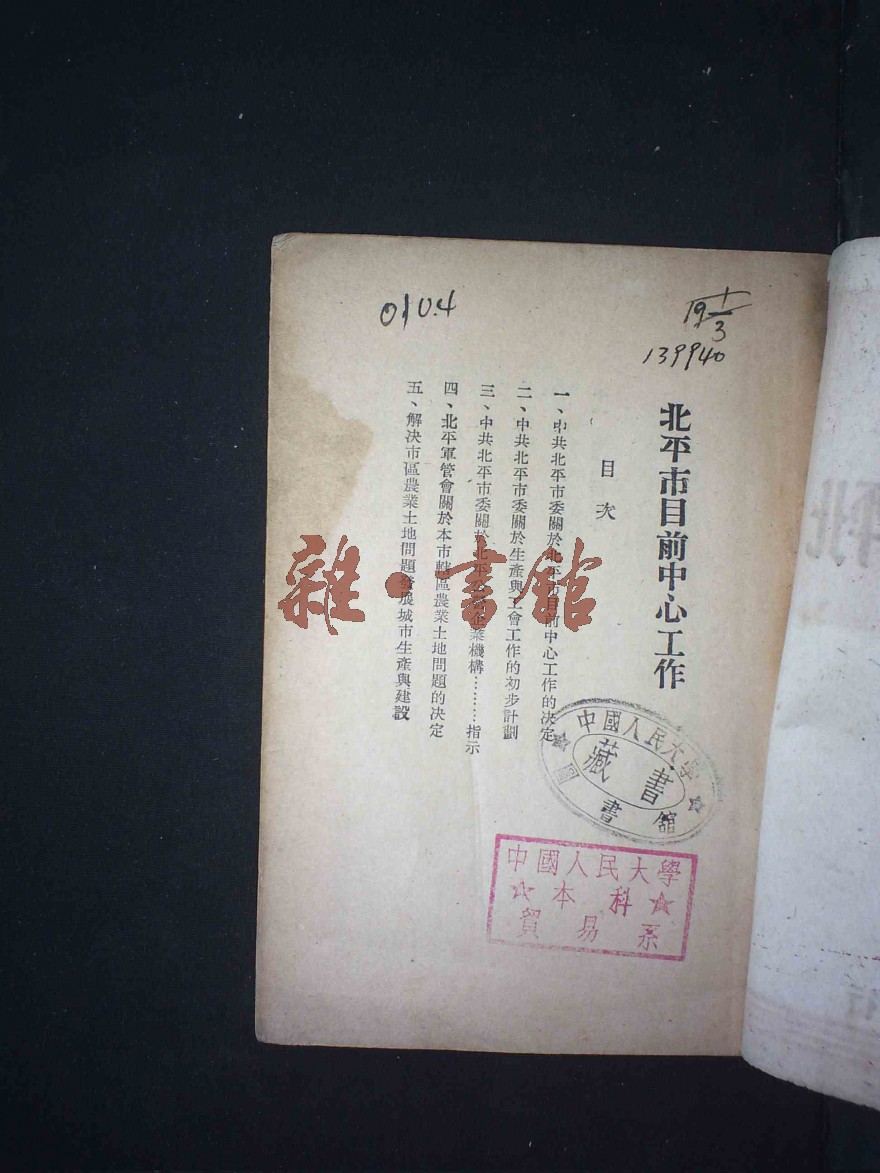 0104
139940
北平市目前中心工作
目次
一、中共北平市委關於北平市目前中心工作的決定
二、中共北平市委關於生產與工會工作的初步計劃
三、中共北平市委關於北平公營企業機構………指示
四、北平軍管會關於本市轄區農業土地問題的決定
五、解決市區農業土地問題發展城市生產與建設
中國人民大學
圖書館
藏書
中國人民大學
本科
貿易系
雜·書館